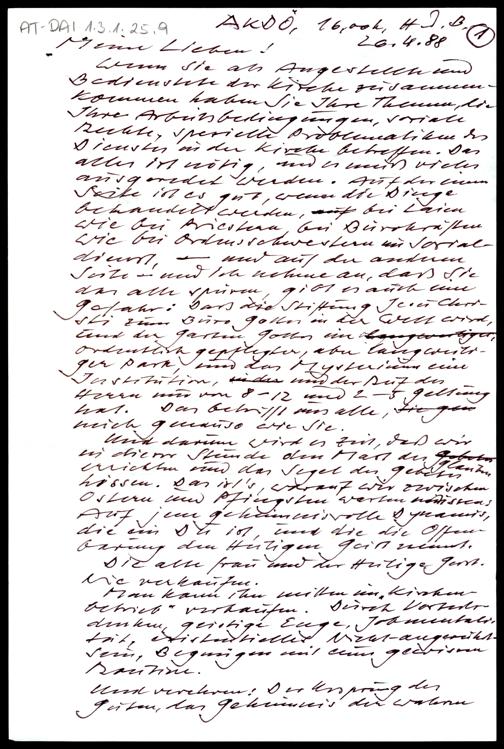 AT-DAI 1.3.1.25.9
AKDÖ, 16,00h, H J. B.
26.4.88 ①
Meine Lieben!
Wenn sie als Angestellte und
Bedienstete der Kirche zusammen-
kommen haben Sie Ihre Themen, die
Ihre Arbeitsbedingungen, soziale
Rechte, spezielle Problematiken des
Dienstes in der Kirche betreffen. Das
alles ist nötig, und es muß vieles
ausgeredet werden. Auf der einen
Seite ist es gut, wenn die Dinge
behandelt werden, auf bei Laien
wie bei Priestern, bei Bürokräften
wie bei Ordensschwestern im Sozial-
dienst, – und auf der anderen
Seite – und ich nehme an, daß Sie
das alle spüren, gibt es auch eine
Gefahr: Daß die Stiftung Jesu Chri-
sti zum Büro Gottes in der Welt wird,
und der Garten Gottes im langweiligen,
ordentlich gepflegter, aber langweili-
ger Park, und das Mysterium eine
Institution, in der und der Ruf des
Herrn nur von 8-12 und 2-5 Geltung
hat. Das betrifft uns alle,
mich genauso wie Sie.
Und darum wird es Zeit, daß wir
in dieser Stunde den Mast des Glaubens
errichten und das Segel des Gebetes
hissen. Das ist's, worauf wir zwischen
Ostern und Pfingsten warten müssen:
Auf jene geheimnisvolle Dynamis,
die ein Du ist, und die die Offen-
barung den Heiligen Geist nennt.
Die alte Frau und der Heilige Geist.
Nie verkaufen.
Man kann ihn mitten im "Kirchen-
betrieb" verkaufen. Durch
denken, geistige Enge, Jobmentali-
tät, existentielles Nicht-angerührt-
sein, Begnügen mit einer gewissen
Routine.
Und verehren: Der Ursprung des
Guten, das Geheimnis der wahren